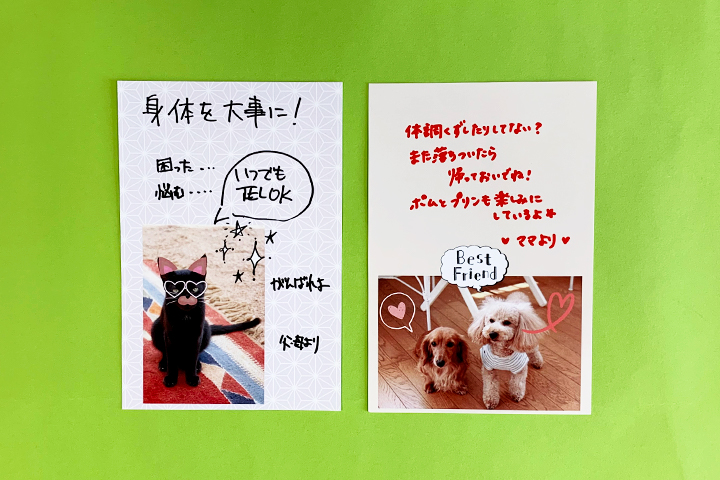 身体を大事に！
困った・・・
悩む・・・・
いつでも
TELOK
がんばれよ
父・母より
体調くずしたりしてない？
また落ちついたら
帰っておいでね！
ポムとプリンも楽しみに
しているよ☆
♥ ママより ♥
Best
Friend